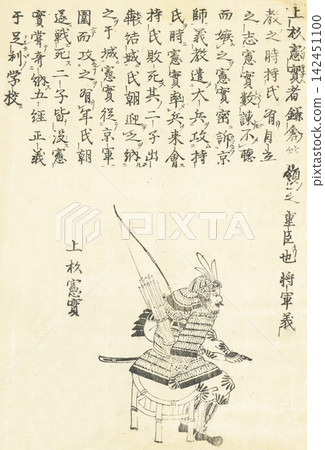 上杦憲實者鎌 領之重臣也將軍義
教之時持氏有自立
之志憲實數諫不聽
而嫉之憲實密訴京
師義教遣大兵攻持
氏時憲實率兵來會
持氏敗死其二子出
奔結城氏朝迎之納
之于城憲實從京軍
圍而攻之有年氏朝
遂戰死二子皆没憲
實嘗寄納五經正義
于足利学校
上杦憲實
PIXTA
pixta.jp - 142451100